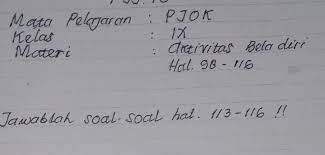 Mata Pelajaran : PJOK
Kelas : IX
Materi : Aktivitas Bela diri
Hal. 98 - 116
Jawablah soal-soal hal. 113-116 !!